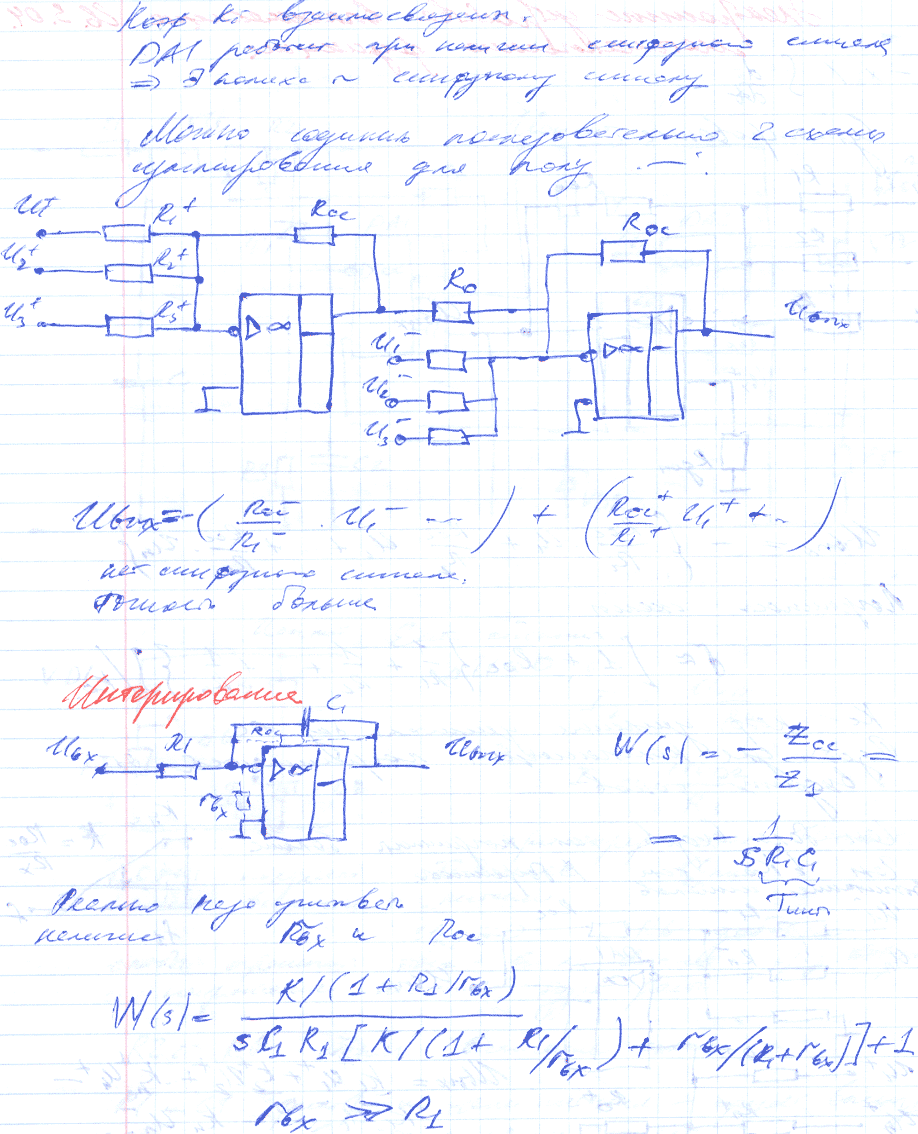 Коэф Ki взаимосвязаны.
DA1 работает при наличии синфазного сигнала
=> ~ синфазному сигналу
Можно соединить последовательно 2 схемы
суммирования для
U1+ R1+ Roc
U2+ R2+ Roc
U3+ R3+ ▷∞ R0
U1- ▷∞ Uвых
U2-
U3-
Uвых = -( Roc-/R1- · U1- ... ) + ( Roc+/R1+ U1+ + .. )
нет синфазного сигнала.
точность больше
Интегрирование
C1
Uвх R1 Roc ▷∞ Uвых
rвх
W(s) = - Zoc/Z1 =
= - 1/(S R1 C1)
Tинт
Реально надо учитывать
наличие rвх и Roc
W(s) = K/(1 + R1/rвх)
s C1 R1 [K/(1 + R1/rвх) + rвх/(R1+rвх)] + 1
rвх ≫ R1